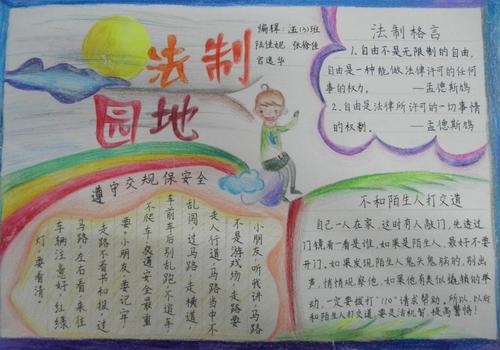 法制
园地
编辑:(3)班
陆佳妮 张徐佳
官逸华
法制格言
1.自由不是无限制的自由,
自由是一种能做法律许可的任何
事的权力。 —孟德斯鸠
2.自由是法律所许可的一切事情
的权利。 —孟德斯鸠
遵守交规保安全
小朋友,听我讲,马路
不是游戏场,走路要
走人行道,马路当中不
乱闯,过马路,走横道,
车前车后别乱跑,不追车
不爬车,交通安全最重
要。小朋友,要记牢
走路不看书和报,过
马路,左右看,来往
车辆注意好,红绿
灯,要看清。
不和陌生人打交道
自己一人在家,这时有人敲门,先透过
门镜看一看是谁,如果是陌生人,最好不要
开门,如果发现陌生人鬼头鬼脑的,别出
声,悄悄观察他,如果他有类似撬锁的举
动,一定要拨打"110"请求帮助。所以,以后
和陌生人打交道,要灵活机智,提高警惕!